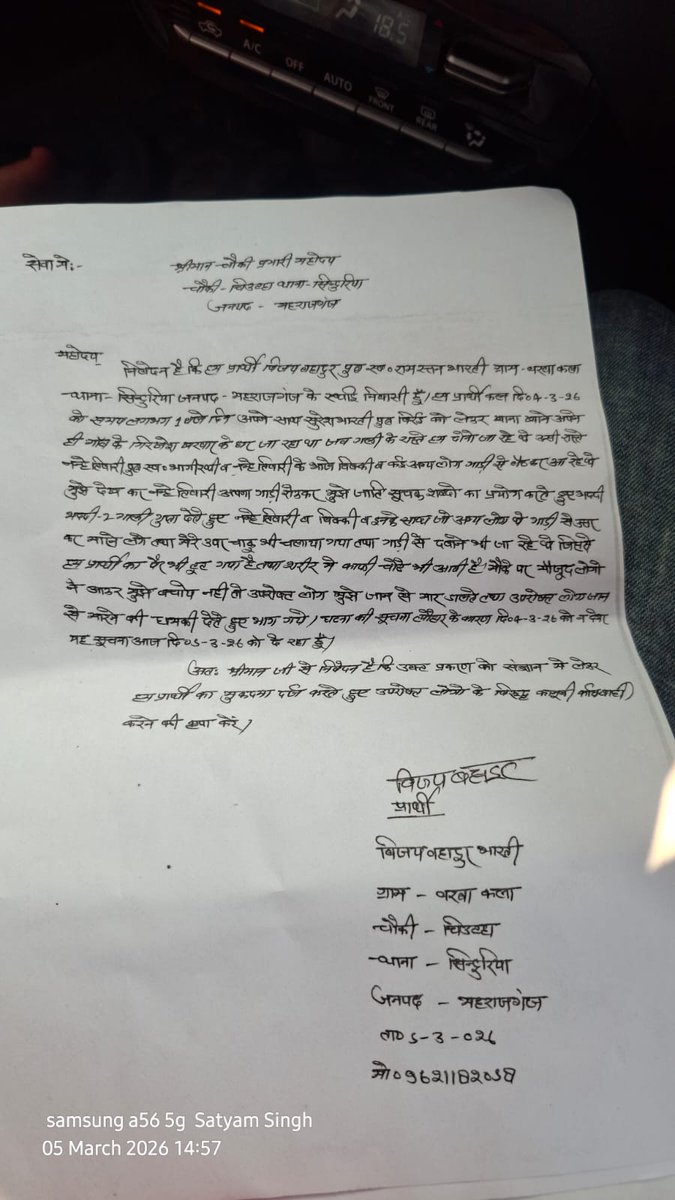 18.5
A/C
OFF
AUTO
FRONT
REAR
सेवा मे:-
श्रीमान चौकी प्रभारी महोदय
चौकी - चिउटहा थाना - सिन्दुरिया
जनपद - महराजगंज
महोदय
निवेदन है कि हम प्रार्थी विजय बहादुर पुत्र स्व० रामरतन भारती ग्राम - बरवा कला
थाना - सिन्दुरिया जनपद - महराजगंज के स्थाई निवासी हूँ। हम प्रार्थी कल दि० 4-3-26
को समय लगभग 1 बजे दिन अपने साथ सुरेश भारती पुत्र को लेकर खाना खाने अपने
ही गांव के के घर जा रहा था जब गली के रास्ते हम दोनो जा रहे थे उसी रास्ते
नन्हे तिवारी पुत्र स्व० भागीरथी व नन्हे तिवारी के विक्की व कई अन्य लोग गाड़ी से बैठकर आ रहे थे
मुझे देख कर नन्हे तिवारी अपना गाड़ी रोककर मुझे जाति सूचक शब्दो का प्रयोग करते हुए भद्दी
भद्दी-2 गाली गुप्ता देते हुए नन्हे तिवारी व विक्की व इनके साथ जो अन्य लोग थे गाड़ी से उतर
कर मारने लगे तथा मेरे उपर चाकू भी चलाया गया तथा गाड़ी से दबोने भी जा रहे थे जिससे
हम प्रार्थी का पैर भी टूट गया है तथा शरीर मे काफी चोटे भी आयी है। मौके पर मौजूद लोगो
ने आकर मुझे बचाये नही तो उपरोक्त लोग मुझे जान से मार डालते तथा उपरोक्त लोग जान
से मारने की धमकी देते हुए भाग गये। घटना की सूचना त्यौहार के कारण दि० 4-3-26 को न देकर
यह सूचना आज दि० 5-3-26 को दे रहा हूँ।
अतः श्रीमान जी से निवेदन है कि उक्त प्रकरण को संज्ञान मे लेकर
हम प्रार्थी का मुकदमा दर्ज करते हुए उपरोक्त लोगो के विरुद्ध कानूनी कार्यवाही
करने की कृपा करें।
विजय बहादुर
प्रार्थी
विजय बहादुर भारती
ग्राम - बरवा कला
चौकी - चिउटहा
थाना - सिन्दुरिया
जनपद - महराजगंज
ता० 5-3-026
मो० 9621182058
samsung a56 5g Satyam Singh
05 March 2026 14:57